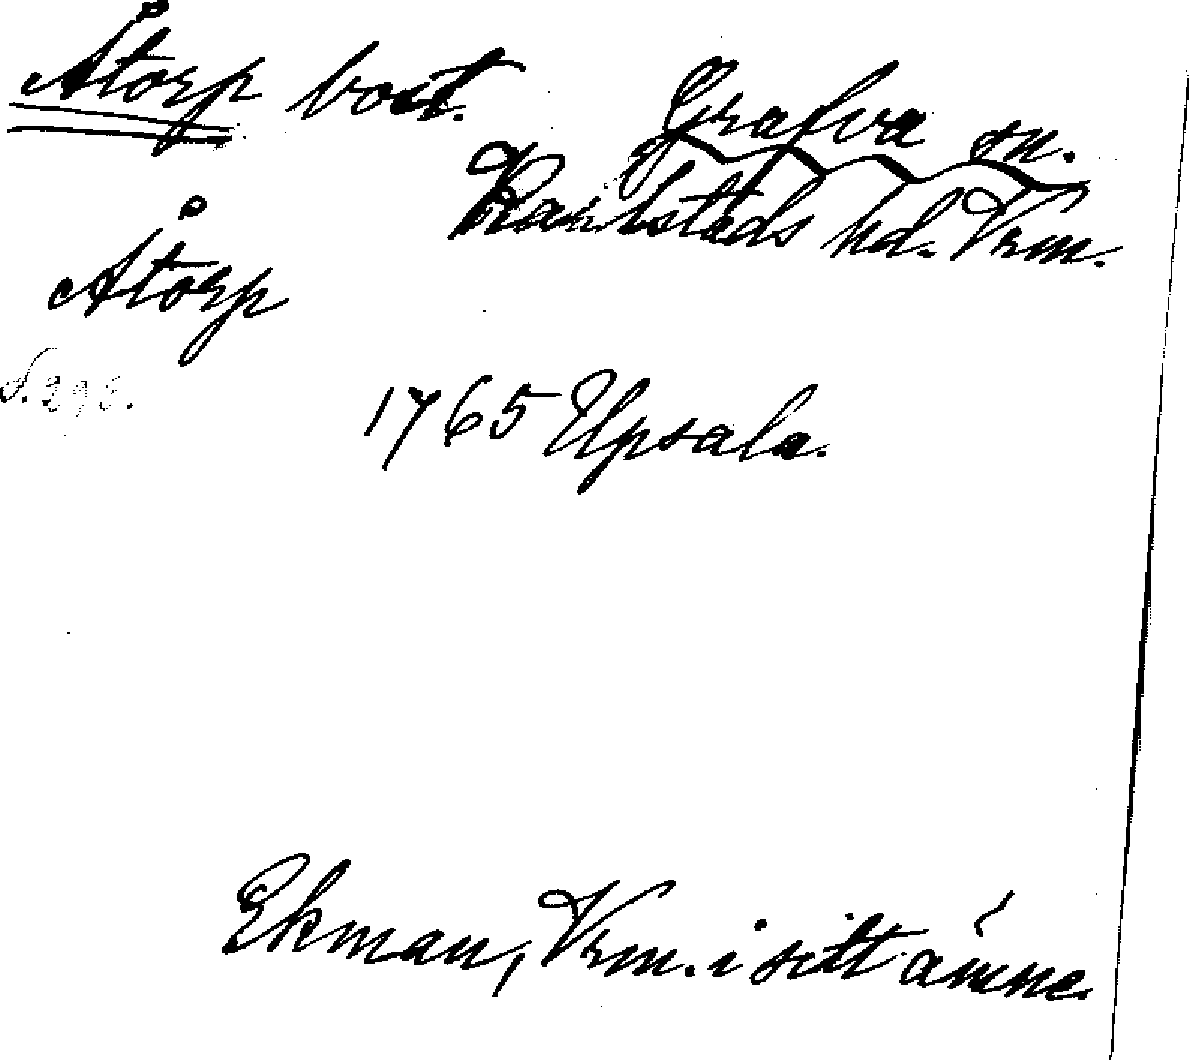 Åtorp bost. Grafva sn.
Karlstads hd. Vrm.
Åtorp
S. 293.
1765 Upsala.
Ekman, Vrm. i sitt ämne.